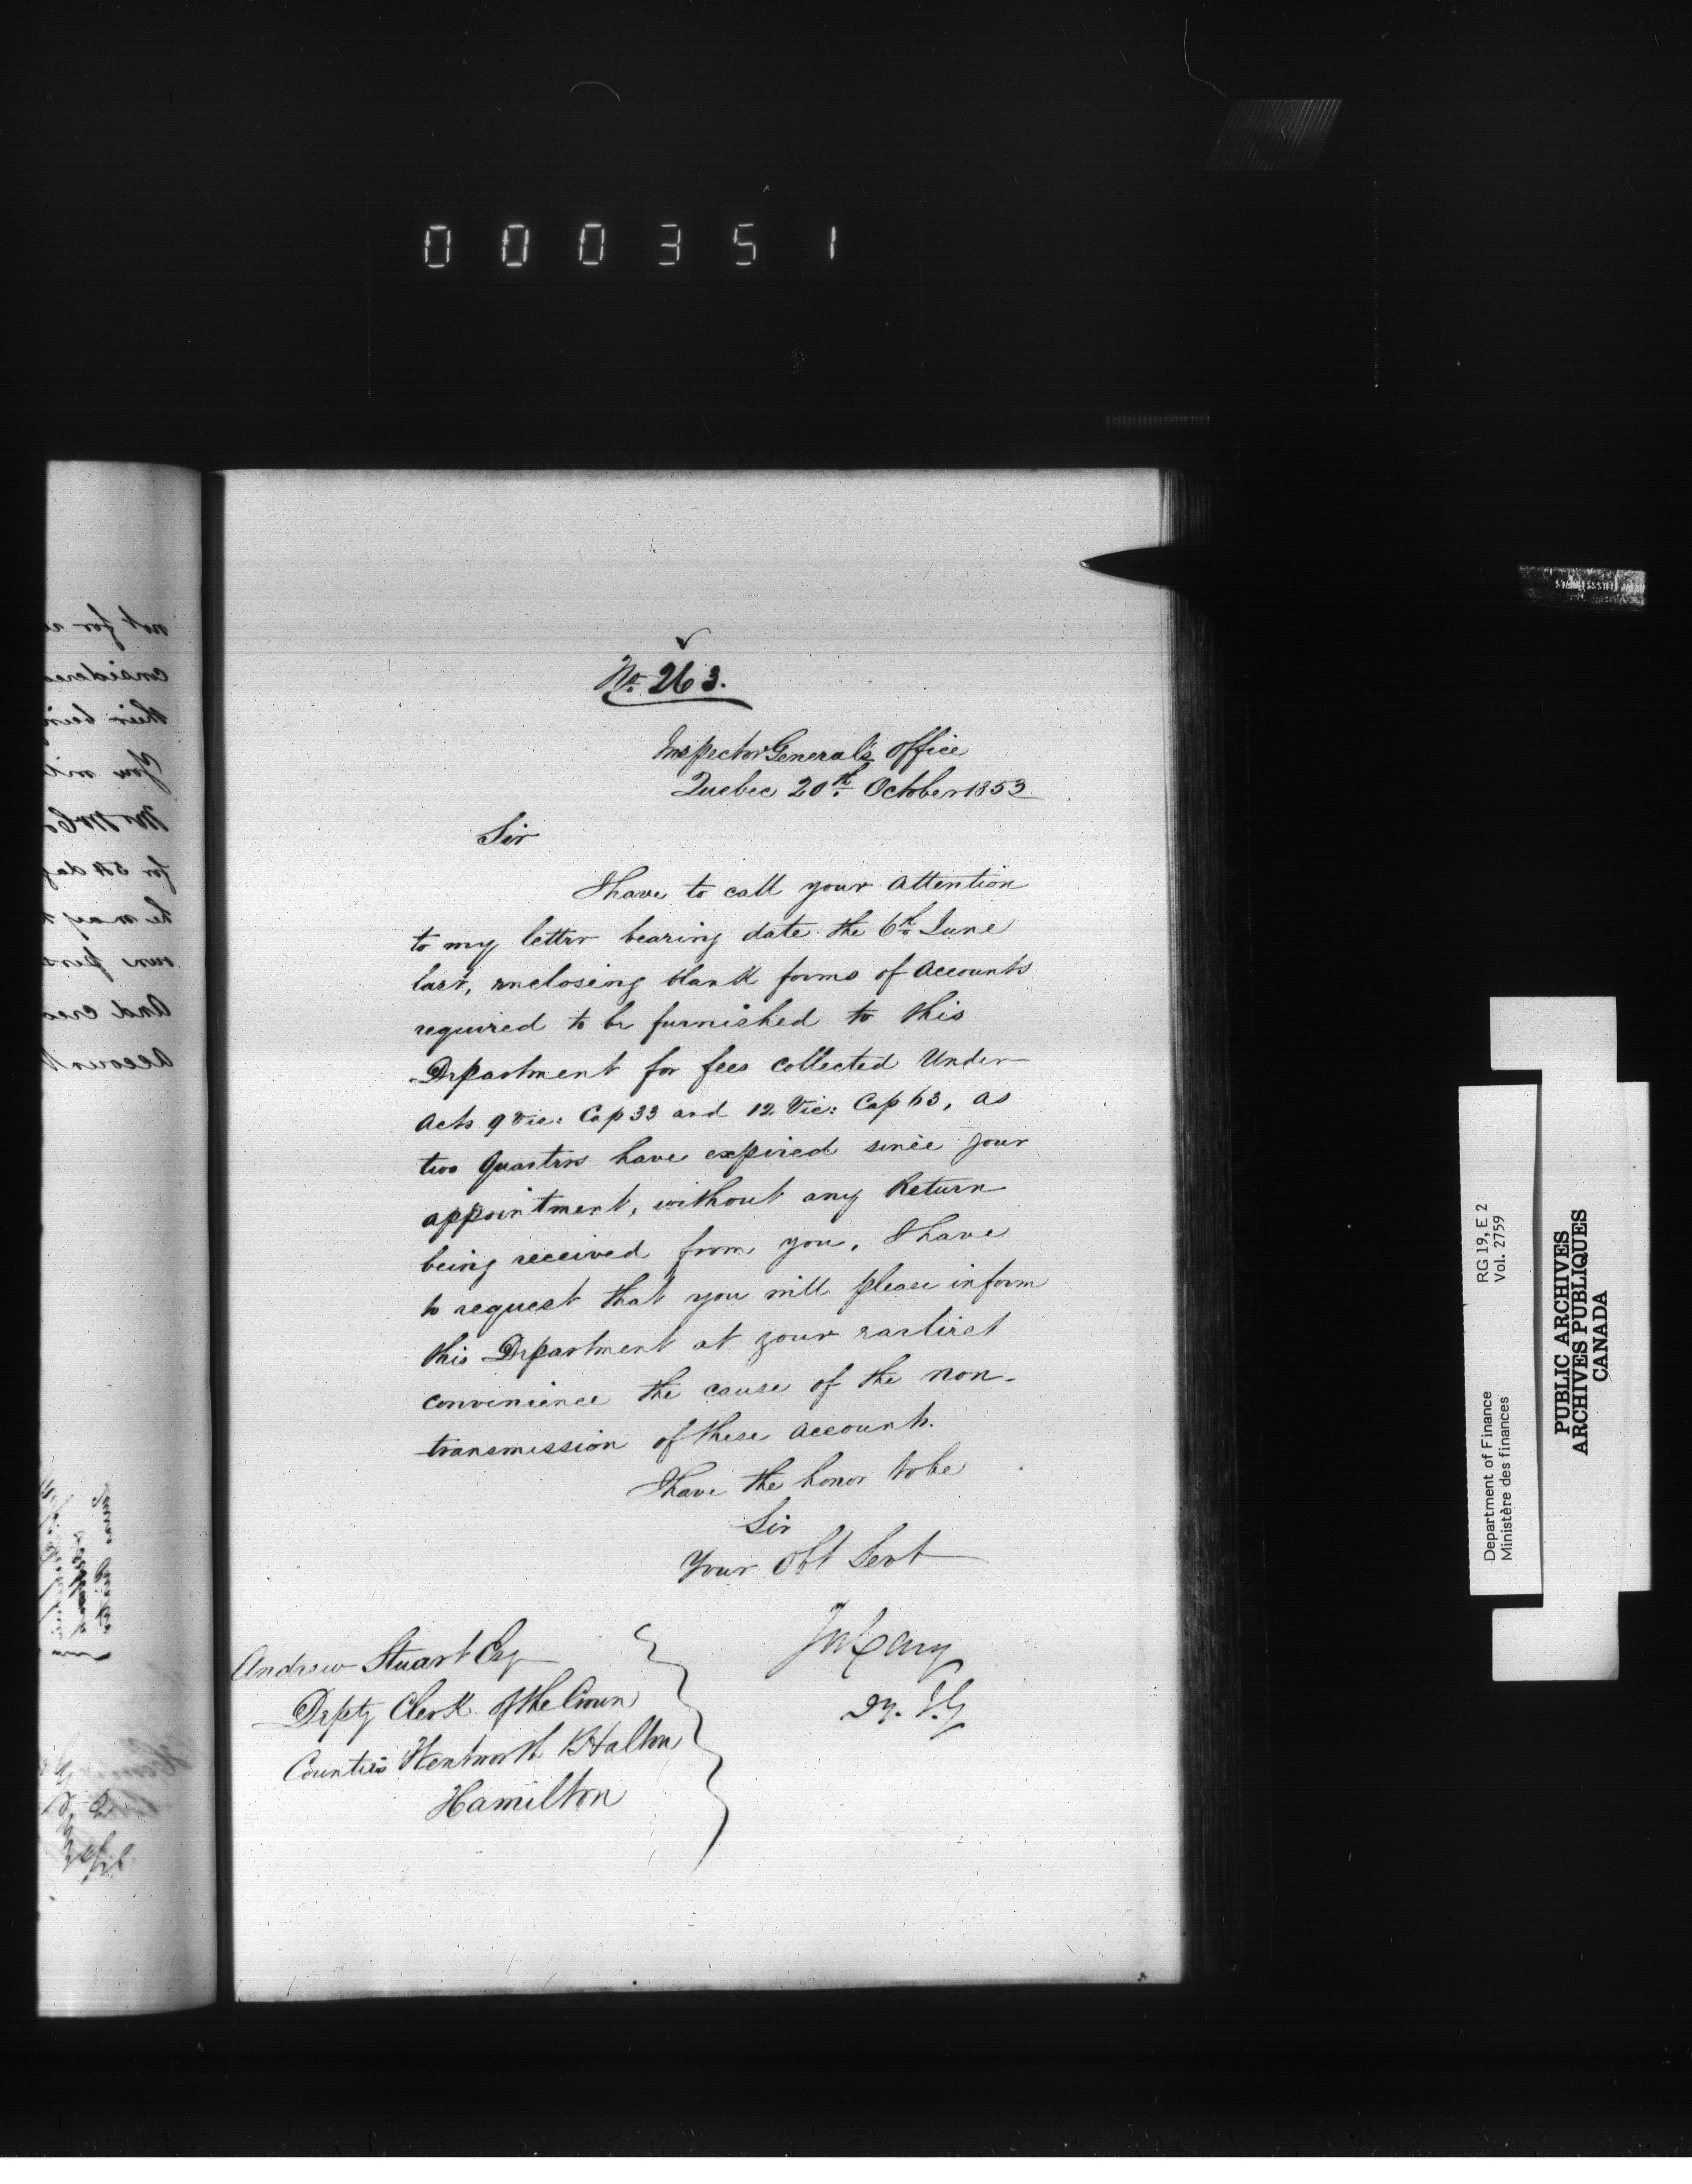 000351
No. 263.
Inspector General's Office
Quebec 20th. October 1853
Sir
I have to call your attention
to my letter bearing date the 6th June
last, enclosing blank forms of Accounts
required to be furnished to this
Department for fees collected Under
Acts 9 Vic: Cap 33 and 12 Vic: Cap 63, as
two Quarters have expired since your
appointment, without any Return
being received from you, I have
to request that you will please inform
this Department at your earliest
convenience the cause of the non-
transmission of these Accounts.
I have the honor to be
Sir
Your Obt Servt
Jos Cary
Dy. I. G
Andrew Stuart Esq
Depty Clerk of the Crown
Counties Wentworth & Halton
Hamilton
not for
considered
their being
You will
for 54 day
he may
own pers
And cred
Account
RG 19, E 2
Vol. 2759
Department of Finance
Ministère des finances
PUBLIC ARCHIVES
ARCHIVES PUBLIQUES
CANADA